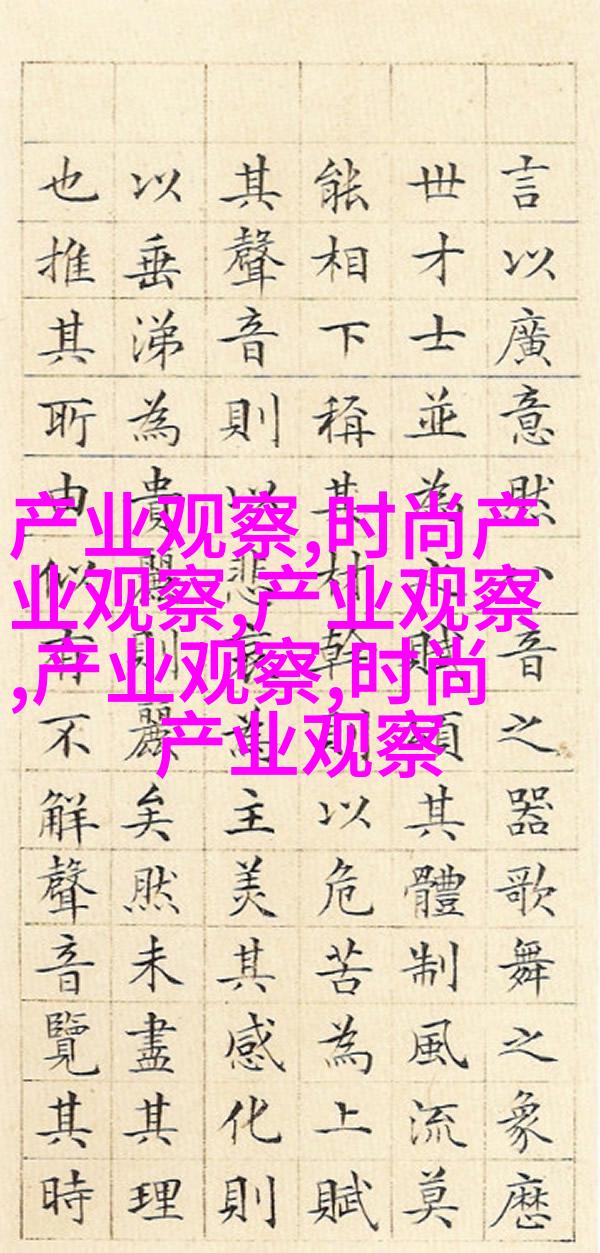 言以廣意然八音之器歌舞之象歷
世才士並為之賦頌其體制風流莫
能相下稱其材幹則以危苦為上賦
其聲音則以悲哀為主美其感化則
以垂涕為貴麗則麗矣然未盡其理
也推其所由似有不解聲音覽其時
产业观察,时尚产
业观察,产业观察
,产业观察,时尚
产业观察